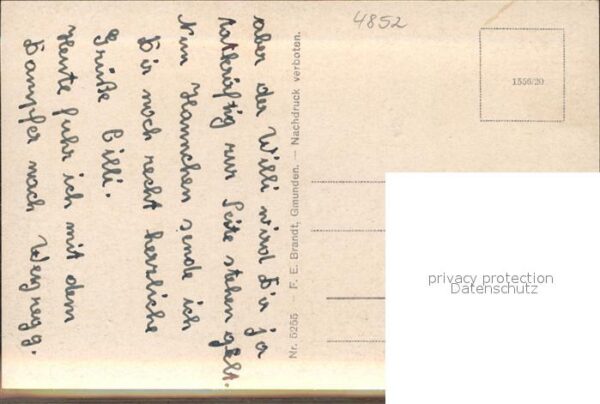 aber der Willi wird Dir ja
tatkräftig zur Seite stehen gelt.
Nun Hannchen sende ich
Dir noch recht herzliche
Grüße Cilli.
Heute fuhr ich mit dem
Dampfer nach Weyregg.
Nr. 5255 F. E. Brandt, Gmunden. — Nachdruck verboten.
4852
1556/20
privacy protection
Datenschutz